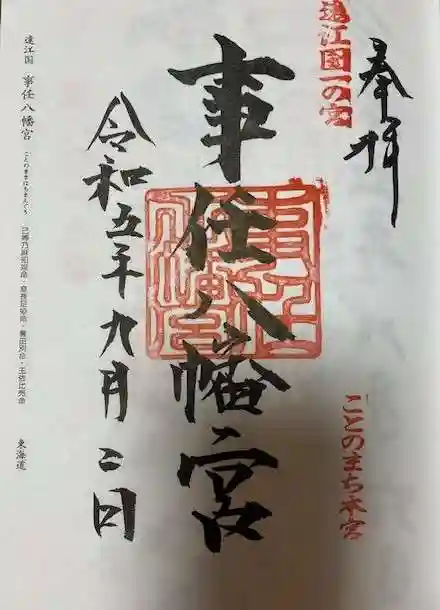 奉拝
遠江国一の宮
ことのまち本宮
事任八幡宮
事任八幡宮
令和五年九月二日
遠江国 事任八幡宮 ことのままはちまんぐう 己等乃麻知比売命・息長足姫命・誉田別命・玉依比売命 東海道